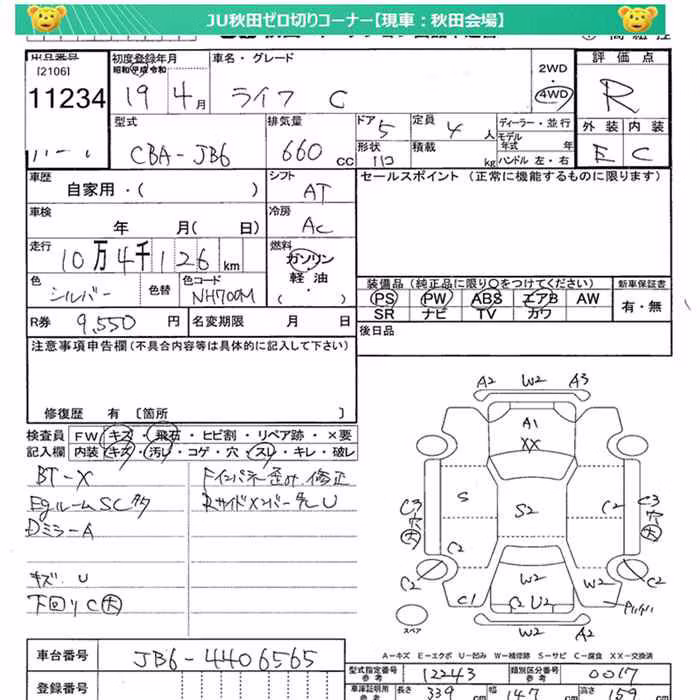 JU秋田ゼロ切りコーナー【現車：秋田会場】
[2106]
11234
初度登録年月
昭和 平成 令和
19 4月
車名・グレード
ライフ C
2WD
4WD
評価点
R
外装 内装
E C
型式
CBA-JB6
排気量
660 CC
ドア 5
形状
定員 4 人
積載 kg
ディーラー・並行
モデル年式 年
ハンドル 左・右
車歴
自家用・( )
シフト
AT
セールスポイント (正常に機能するものに限ります)
車検
年 月( 日)
冷房
AC
走行
10万4千126 km
燃料
ガソリン
軽油
( )
色
シルバー
色替
色コード
NH700M
装備品 (純正品に限り○をつけてください)
新車保証書
PS PW ABS エアB AW
SR ナビ TV カワ
有・無
R券 9,550 円
名変期限 月 日
後日品
注意事項申告欄 (不具合内容等は具体的に記入して下さい)
修復歴 有 [箇所 ]
検査員
記入欄
FW キズ・飛石・ヒビ割・リペア跡・×要
内装 キズ・汚レ・コゲ・穴・スレ・キレ・破レ
BT-X
EgルームSCタタ
Dミラ-A
キズ U
下回りC大
Fインパネ歪み修正
RサイドメンバーズレU
A2 W2 A3
A1
XX
S S2 C2
C3
穴
大
C3
穴
大
C2
C2 C2
W2 W2
C1 C2U2
W2 A2
スペア
A－キズ E－エクボ U－凹み W－補修跡 S－サビ C－腐食 XX－交換済
車台番号 JB6-4406565
登録番号
型式指定番号
参考
12243
類別区分番号
参考
0017
車庫証明用
参考
長さ 339 cm
幅 147
高さ 157